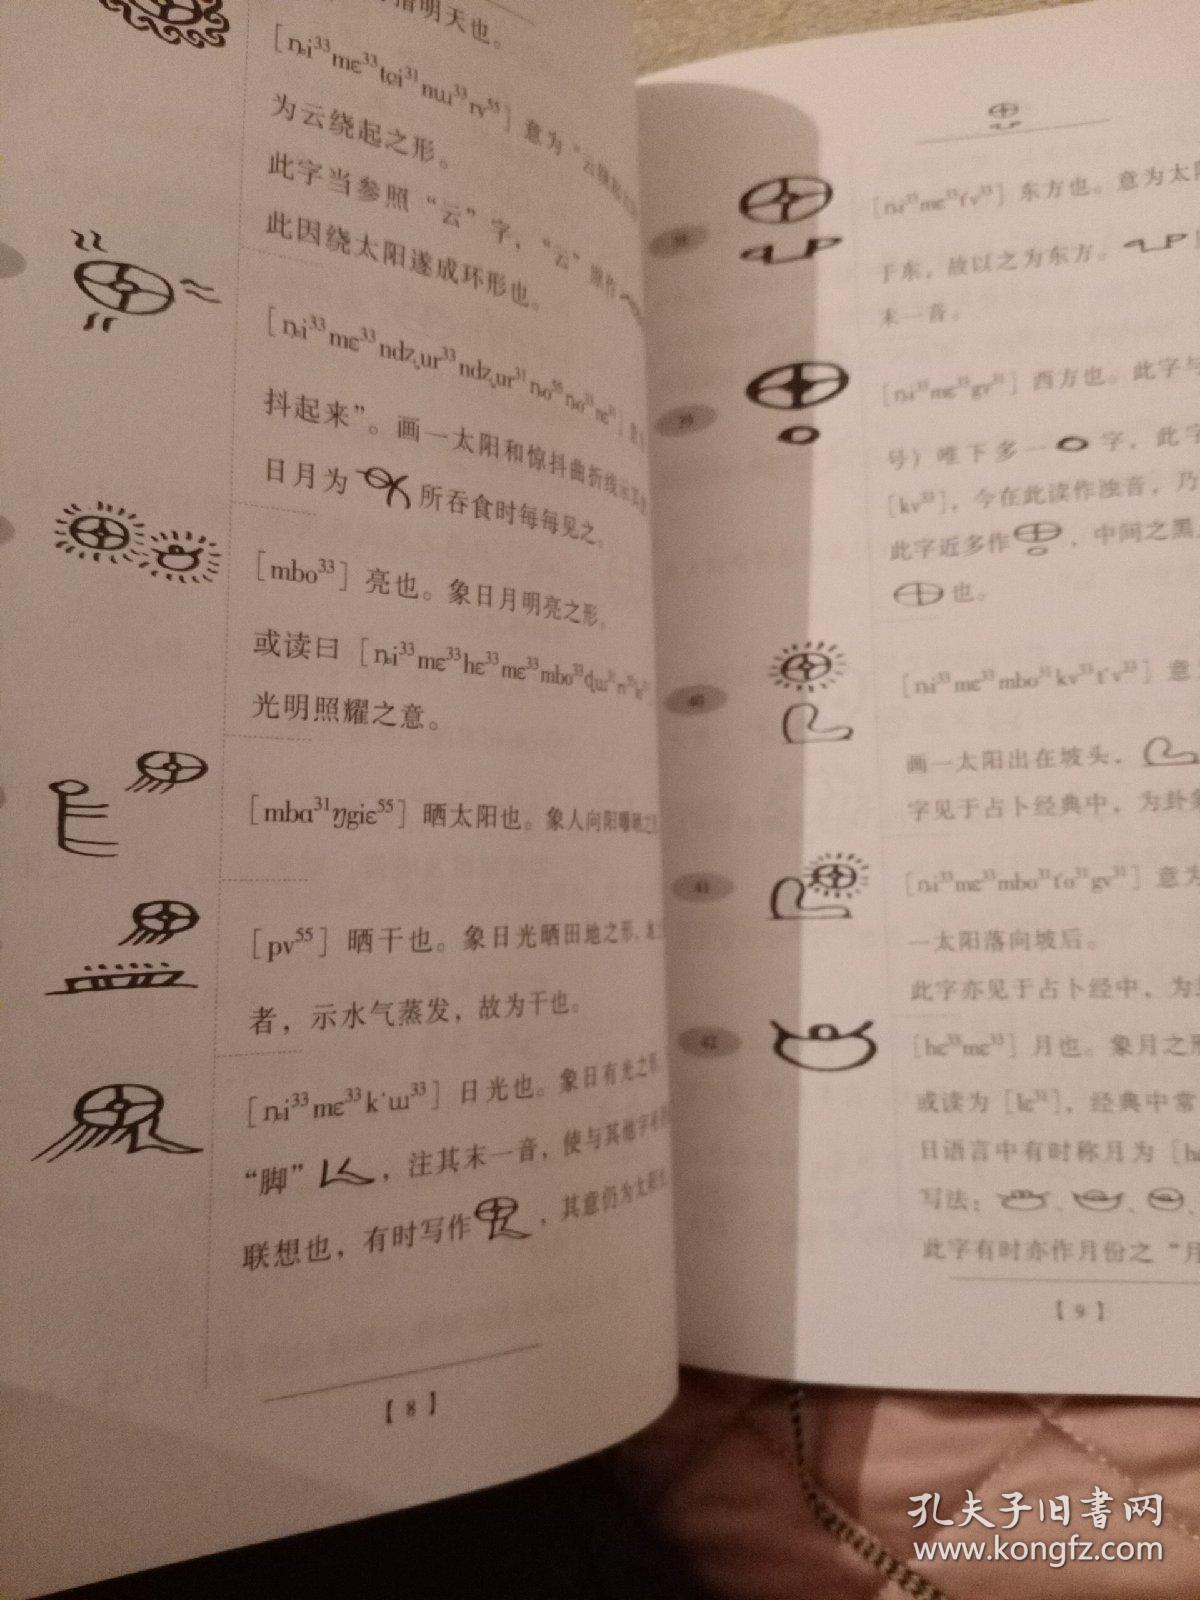 指明天也。
[ȵi³³mɛ³³tɕi³¹nɯ³³rv⁵⁵] 意为“云
为云绕起之形。
此字当参照“云”字，“云”原作
此因绕太阳遂成环形也。
[ȵi³³mɛ³³ndʐur³³ndʐur³¹ȵo⁵⁵ȵo³¹nɛ³¹]
抖起来”。画一太阳和惊抖曲折线
日月为 所吞食时每每见之。
[mbo³³] 亮也。象日月明亮之形。
或读曰 [ȵi³³mɛ³³hɛ³³mɛ³³mbo³³ɖɯ³¹
光明照耀之意。
[mbɑ³¹ŋgiɛ⁵⁵] 晒太阳也。象人向阳曝晒之
[pv⁵⁵] 晒干也。象日光晒田地之形，
者，示水气蒸发，故为干也。
[ȵi³³mɛ³³kʻɯ³³] 日光也。象日有光之形，
“脚” ，注其末一音，使与其他字
联想也，有时写作 ，其意仍为太
【8】
38
[ȵi³³mɛ³³tʻv³³] 东方也。意为太阳
于东，故以之为东方。
末一音。
39
[ȵi³³mɛ³³gv³¹] 西方也。此字与
号）唯下多一 字，此字
[kv³³]，今在此读作浊音，乃
此字近多作 ，中间之黑
也。
40
[ȵi³³mɛ³³mbo³¹kv³³tʻv³³] 意
画一太阳出在坡头，
字见于占卜经典中，为卦
41
[ȵi³³mɛ³³mbo³¹tʻo³¹gv³¹] 意为
一太阳落向坡后。
此字亦见于占卜经中，为
42
[hɛ³³mɛ³³] 月也。象月之形
或读为 [lɛ³¹]，经典中常
日语言中有时称月为 [h
写法： 、 、 、
此字有时亦作月份之“月
【9】
孔夫子旧书网
www.kongfz.com